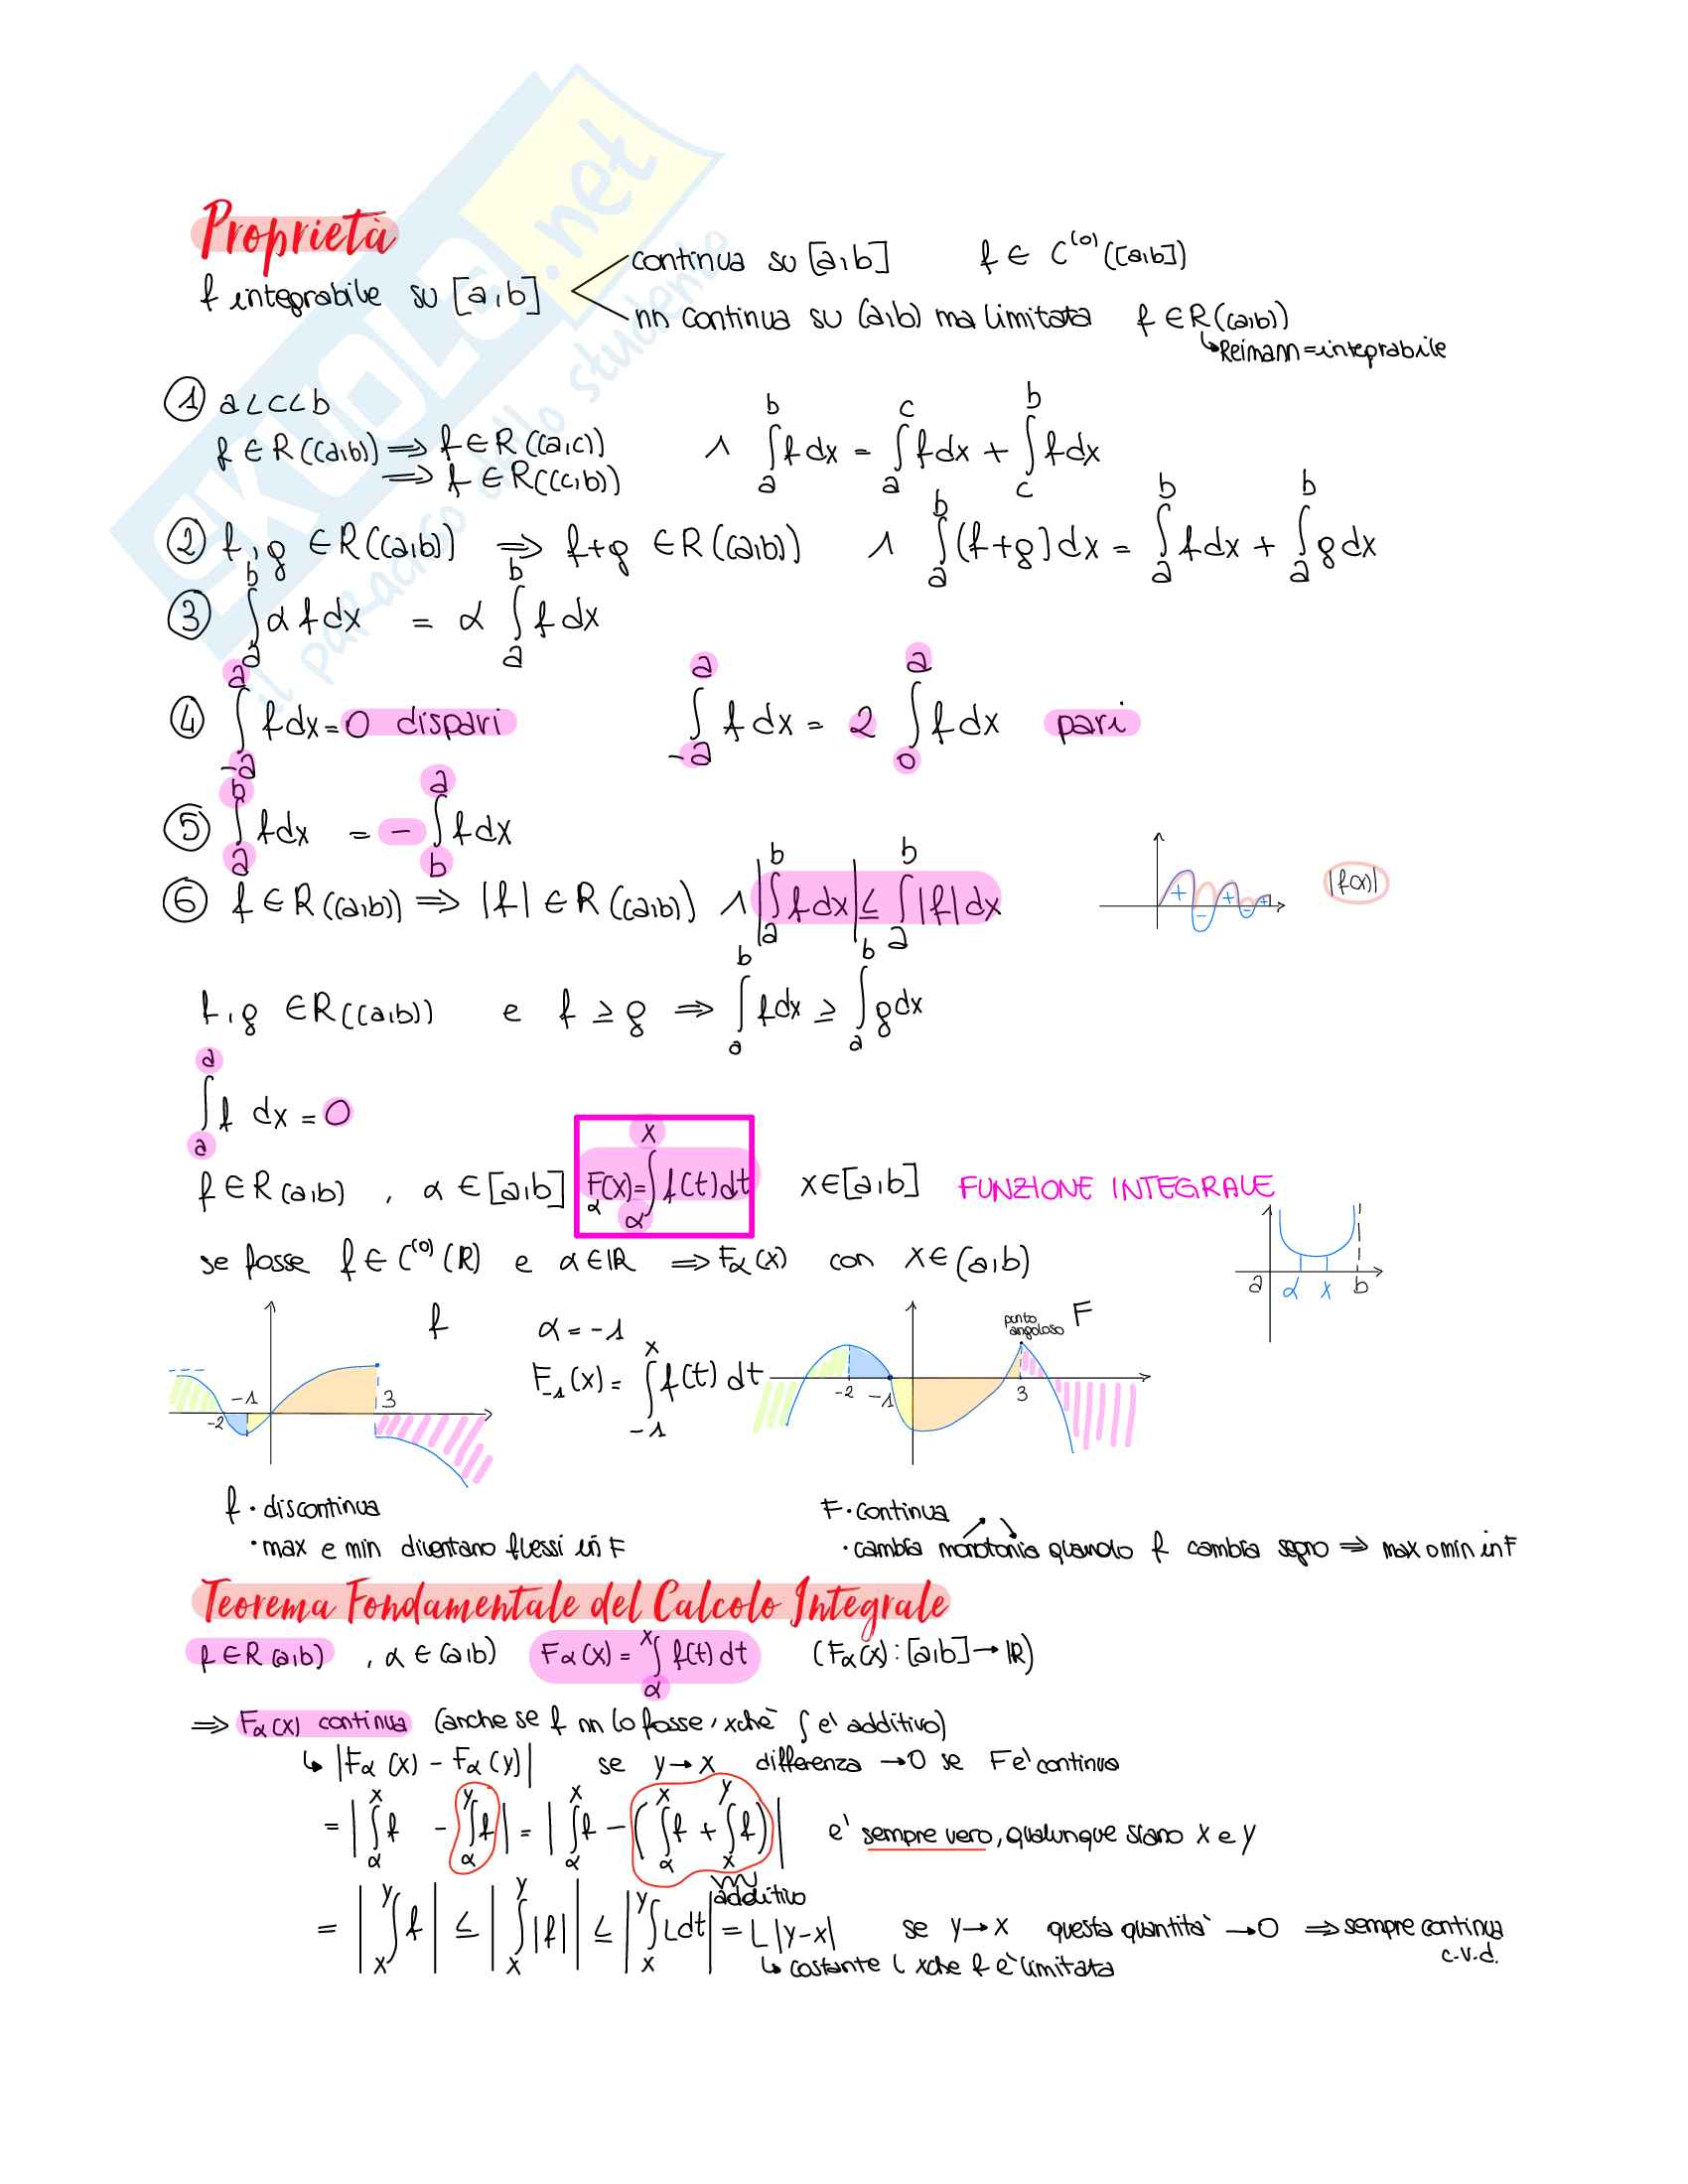 Proprietà
f integrabile su [a,b]
continua su [a,b] f ∈ C⁽⁰⁾([a,b])
nn continua su (a,b) ma limitata f ∈ R((a,b))
↳ Reimann = integrabile
① a<c<b
f ∈ R((a,b)) ⟹ f ∈ R((a,c)) ∧ ∫_a^b f dx = ∫_a^c f dx + ∫_c^b f dx
⟹ f ∈ R((c,b))
② f, g ∈ R((a,b)) ⟹ f+g ∈ R((a,b)) ∧ ∫_a^b (f+g) dx = ∫_a^b f dx + ∫_a^b g dx
③ ∫_a^b α f dx = α ∫_a^b f dx
④ ∫_{-a}^a f dx = 0 dispari ∫_{-a}^a f dx = 2 ∫_0^a f dx pari
⑤ ∫_a^b f dx = - ∫_b^a f dx
⑥ f ∈ R((a,b)) ⟹ |f| ∈ R((a,b)) ∧ |∫_a^b f dx| ≤ ∫_a^b |f| dx
+ - + - +
|f(x)|
f, g ∈ R((a,b)) e f ≥ g ⟹ ∫_a^b f dx ≥ ∫_a^b g dx
∫_a^a f dx = 0
f ∈ R(a,b) , α ∈ [a,b] F_α(x) = ∫_α^x f(t) dt x ∈ [a,b] FUNZIONE INTEGRALE
se fosse f ∈ C⁽⁰⁾(R) e α ∈ ℝ ⟹ F_α(x) con x ∈ (a,b)
1
a α x b
f
-2 -1 3
α = -1
F_{-1}(x) = ∫_{-1}^x f(t) dt
punto angoloso F
-2 -1 3
f · discontinua
· max e min diventano flessi in F
F · continua
· cambia monotonia quando f cambia segno ⟹ max o min in F
Teorema Fondamentale del Calcolo Integrale
f ∈ R(a,b) , α ∈ (a,b) F_α(x) = ∫_α^x f(t) dt (F_α(x) : [a,b] → ℝ)
⟹ F_α(x) continua (anche se f nn lo fosse, xchè ∫ e' additivo)
↳ |F_α(x) - F_α(y)| se y → x differenza → 0 se F e' continua
= |∫_α^x f - ∫_α^y f| = |∫_α^x f - (∫_α^x f + ∫_x^y f)| e' sempre vero, qualunque siano x e y
additivo
= |∫_x^y f| ≤ |∫_x^y |f|| ≤ |∫_x^y L dt| = L |y-x| se y → x questa quantita' → 0 ⟹ sempre continua
c.v.d.
↳ costante L xche f è limitata
SKUOLA.net
il paradiso dello studente